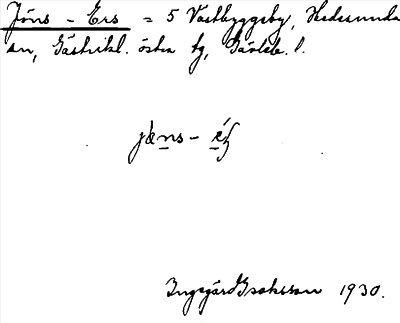 Jöns - Ers = 5 Västbyggeby, Hedesunda
sn, Gästrikl. östra tg, Gävleb. l.
jœns - éʂ
Ingegärd Isaksson 1930.